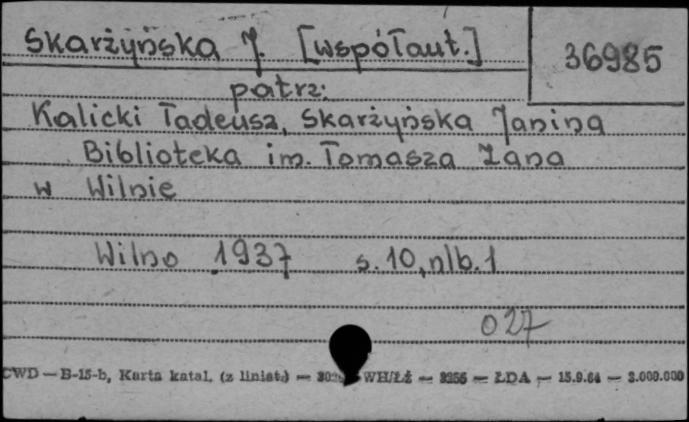 Skarżyńska J. [współaut.]
36985
patrz:
Kalicki Tadeusz, Skarżyńska Janina
Biblioteka im. Tomasza Zana
w Wilnie
Wilno 1937 s. 10, nlb. 1
027
CWD — B-15-b, Karta katal. (z liniat.) — WH/Łź — — ŁDA — 15.9.64 — 3.000.000